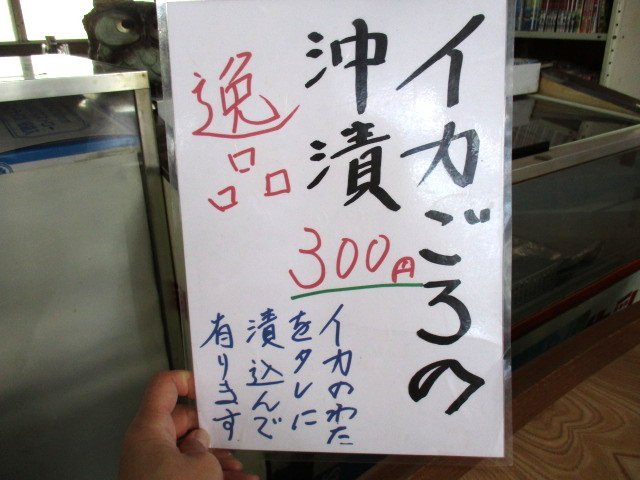 イカごろの
沖漬
300円
逸品
イカのわた
をタレに
漬込んで
有ります